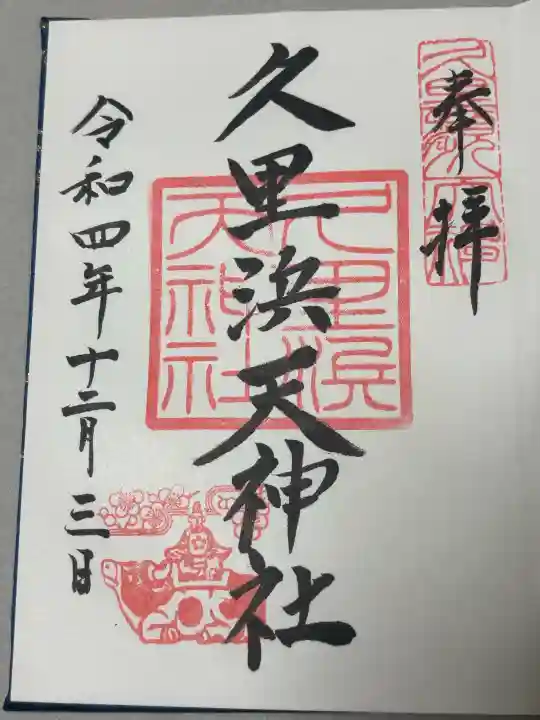 奉拝
久里浜天神社
久里浜天神社
令和四年十二月三日